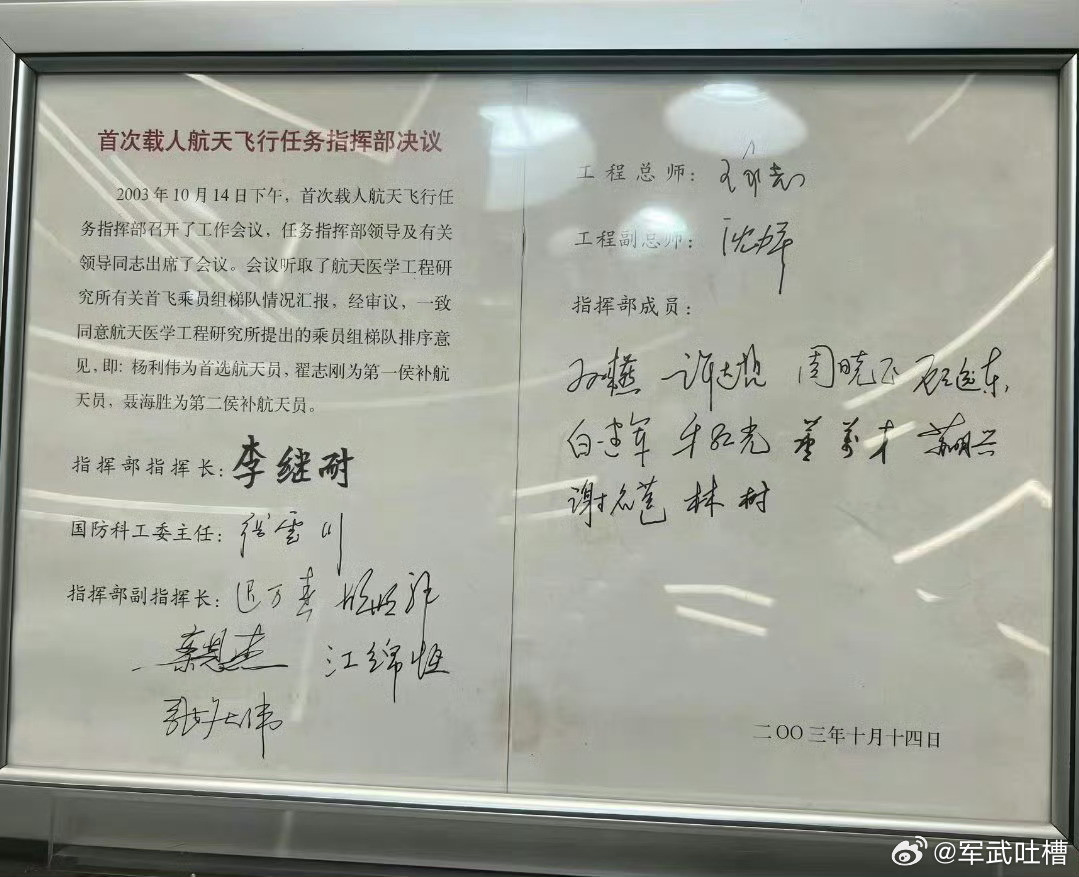 首次载人航天飞行任务指挥部决议
2003年10月14日下午，首次载人航天飞行任
务指挥部召开了工作会议，任务指挥部领导及有关
领导同志出席了会议。会议听取了航天医学工程研
究所有关首飞乘员组梯队情况汇报，经审议，一致
同意航天医学工程研究所提出的乘员组梯队排序意
见，即：杨利伟为首选航天员，翟志刚为第一侯补航
天员，聂海胜为第二侯补航天员。
指挥部指挥长：李继耐
国防科工委主任：张云川
指挥部副指挥长：迟万春
江绵恒
工程总师：王永志
工程副总师：沈力平
指挥部成员：
许达哲 周晓飞 顾逸东
白建军 牛红光 董万才 苏明兴
谢名苞 林树
二〇〇三年十月十四日
@军武吐槽